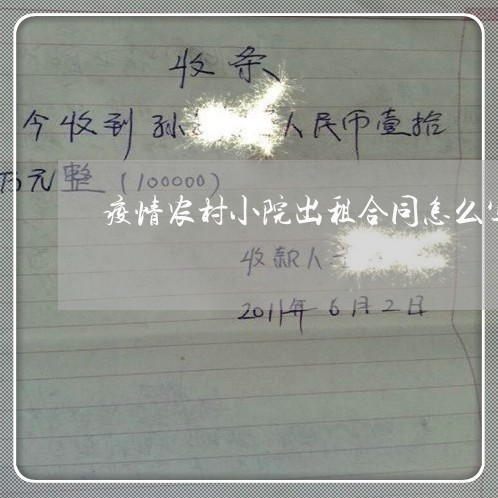 收条
今收到孙 人民币壹拾
万元整（100000）
疫情农村小院出租合同怎么
收款人
2011年6月2日